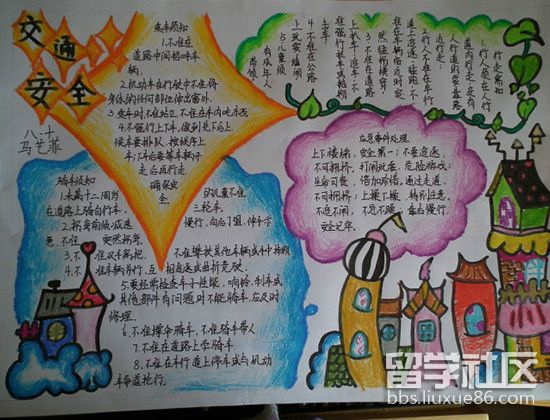 交通
安全
八、十
马艺菲
乘车须知
1.不准在
道路中间招呼车
辆。
2.机动车在行驶中不准将
身体的任何部位伸出窗外。
3.乘车时不准站立,不准在车内吃东西
4.不强行上下车,做到先下后上,
候车要排队,按秩序上
车;下车后要等车辆开
走后再行走
确保安
全
1.行走需知
1.行人须在人行
道内行走,没有
人行道的要靠路
边行走;
2.行人不准在车行
道上追逐
然猛拐横穿
3.不准在道路上
扒车、追车,不
在强行拦车或抛物
击车;
4.不准在公路
上玩耍嬉闹
5.儿童须
有成年人
带领
应急事件处理
上下楼梯,安全第一;不要追逐,
不可拥挤;打闹玩意,危险游戏;
坐

倍加珍惜。通过走道,
不可拥挤;上楼下楼,特别注意,
不追不闹,不急不躁,靠右慢行,
安全记牢。
骑车须知
1.未满十二周岁
在道路上骑自行车。
2.拐弯前须减速
慢行,向后了望,伸手示
意,不准突然拐弯。
的儿童不准
三轮车。
3.不准双手离把,
不准攀扶其他车辆或手中持物
4.不准车辆并行,互相追逐或曲折竞驶。
5.要经常检查车子性能,响铃、刹车或
其他部件有问题时不能骑车,应及时
修理。
6.不准撑伞骑车,不准骑车带人
7.不准在道路上学骑车
8.不准在车行道上停车或与机动
车争道抢行。
留学社区
bbs.liuxue86.com